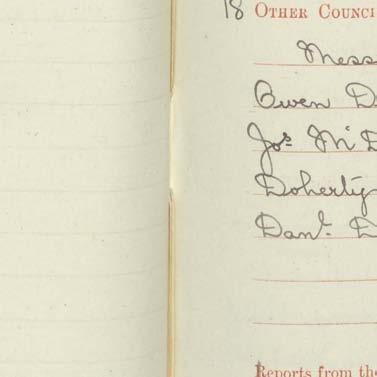 18 OTHER COUNCI
Mess
Owen D
Jos. McD
Doherty
Danl. D
Reports from the